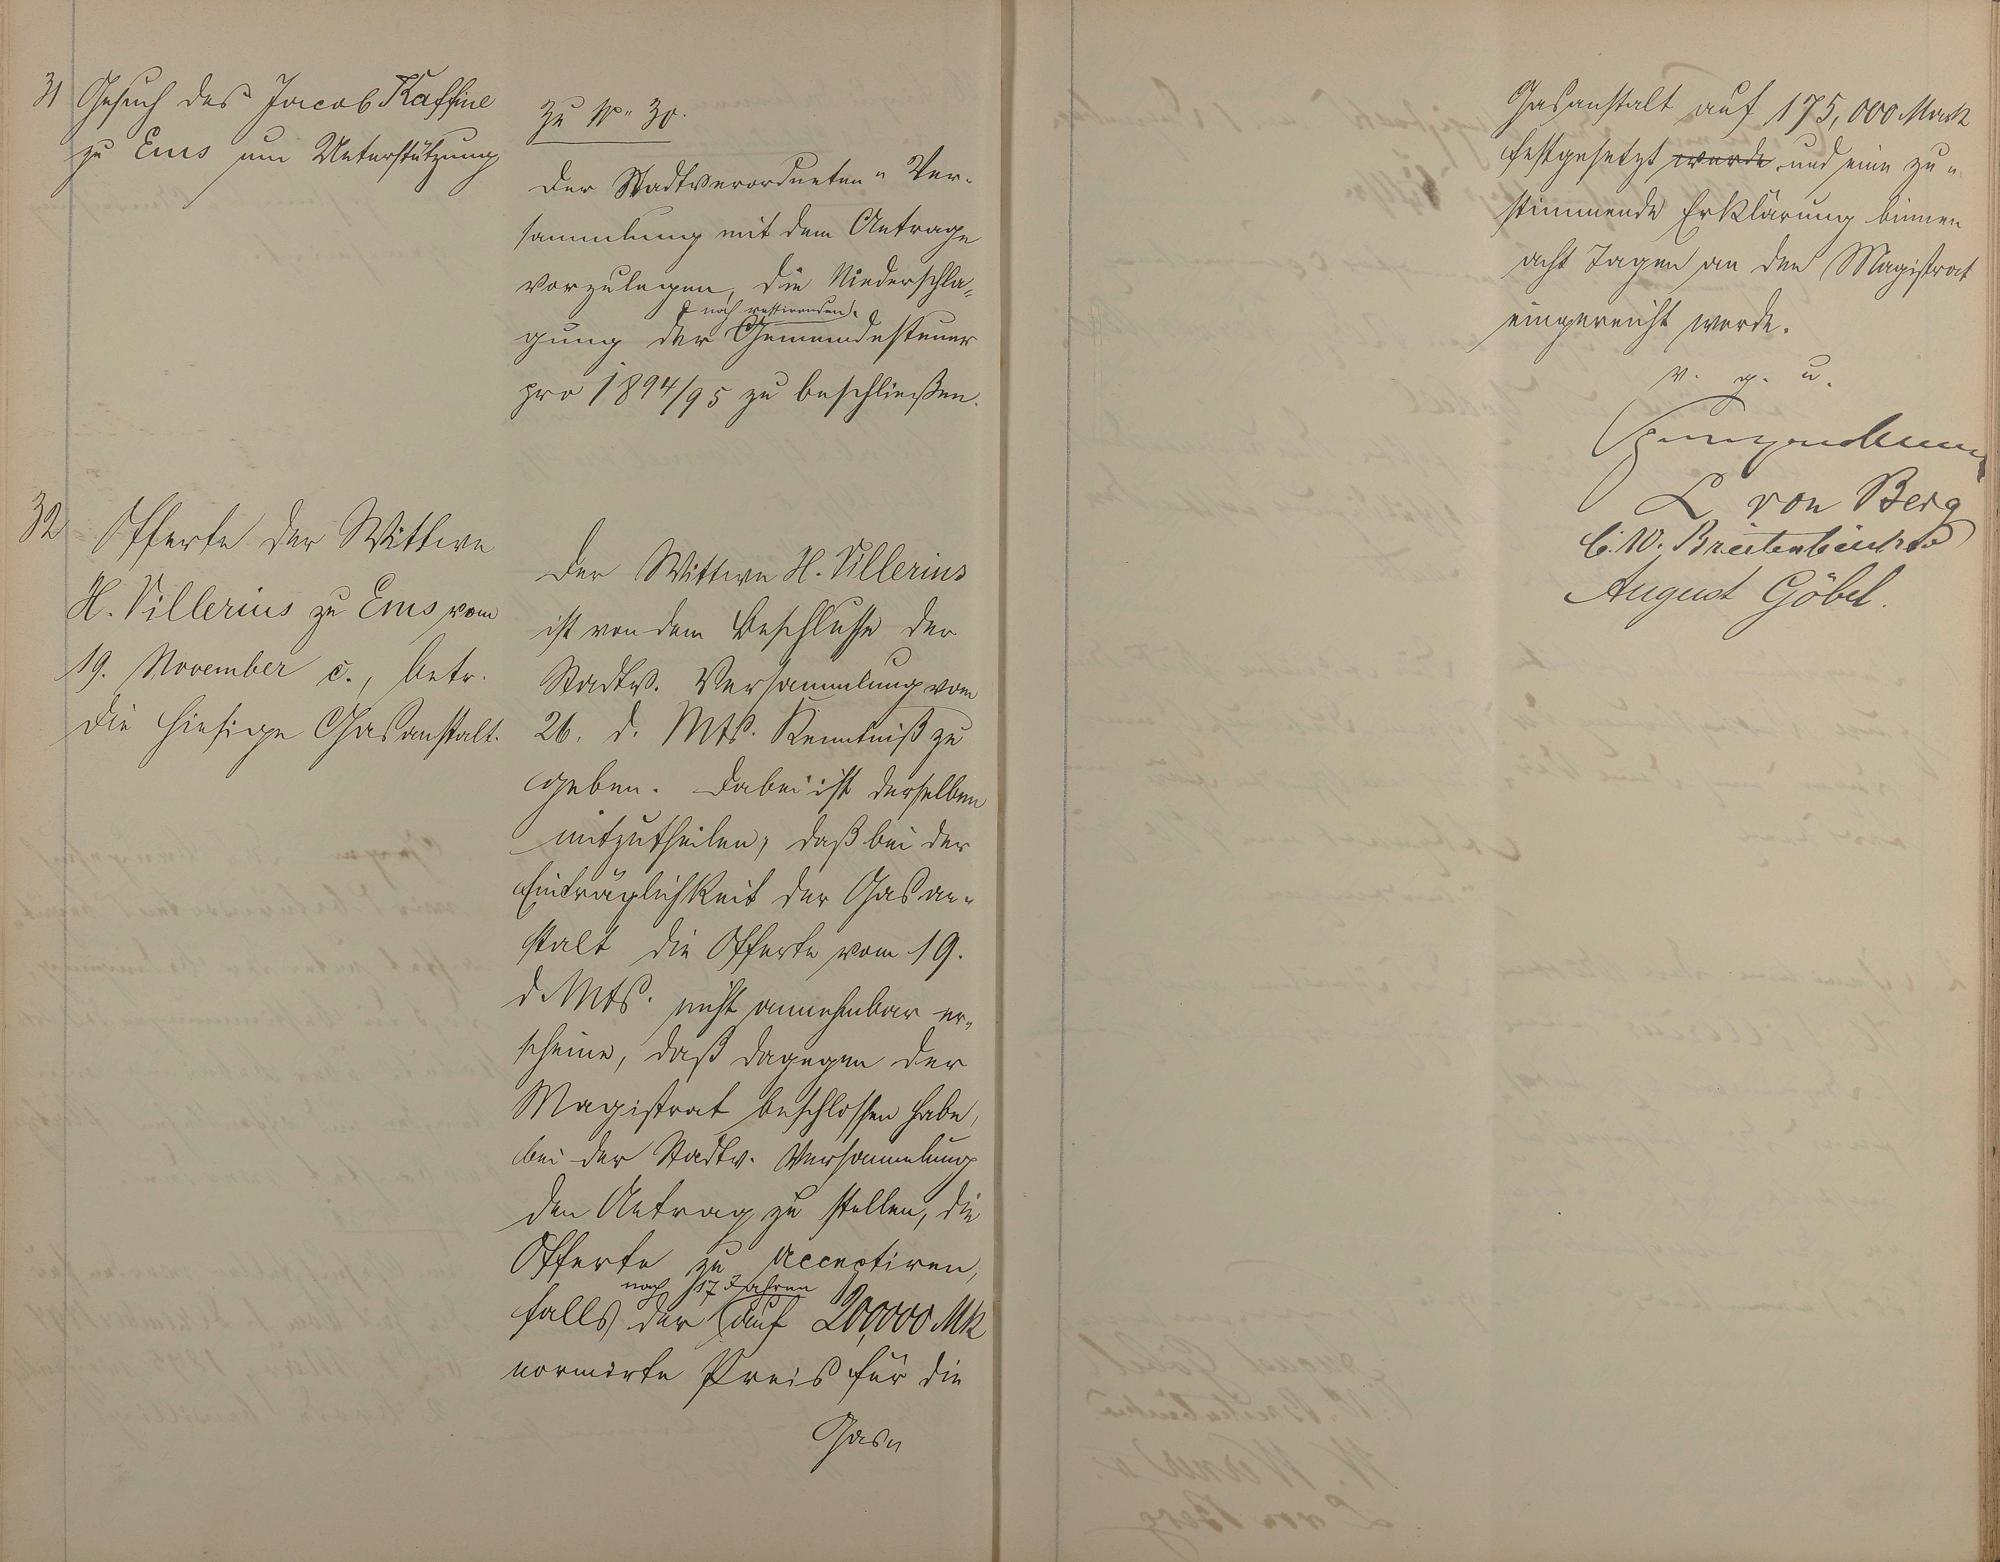 31 Gesuch des Jacob Kaffine
zu Ems um Unterstützung
zu N. 30.
Der Stadtverordneten-Ver-
sammlung mit dem Antrage
vorzulegen, die Niederschla-
gung der
noch restirenden
Gemeindesteuer
pro 1894/95 zu beschließen.
32 Offerte der Wittwe
H. Villerius zu Ems vom
19. November c., betr.
die hiesige Gasanstalt.
Der Wittwe H. Villerius
ist von dem Beschlusse der
Stadtv. Versammlung vom
26. d. Mts. Kenntniß zu
geben. Dabei ist derselben
mitzutheilen, daß bei der
Einträglichkeit der Gasan-
stalt die Offerte vom 19.
d. Mts. nicht annehmbar er-
scheine, daß dagegen der
Magistrat beschlossen habe,
bei der Stadtv. Versammlung
den Antrag zu stellen, die
Offerte zu acceptiren,
falls der
nach 17 Jahren
auf 200,000 Mk
normirte Preis für die
Gas-
Gasanstalt auf 175,000 Mark
festgesetzt werde und eine zu-
stimmende Erklärung binnen
acht Tagen an den Magistrat
eingereicht werde.
v. g. u.
L von Berg
C. W. Breitenbücher
August Göbel.